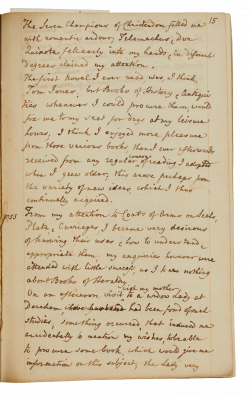 15
The Seven Champions of Christendom filled me
with romantic ardour, Telemachus, Don
Quixote fell early into my hands, in different
Degrees claimed my attention.
The first Novel I ever read was, I think,
Tom Jones, but Books of History, & Antiqui-
ties whenever I could procure them would
fix me to my seat for days at my leisure
hours, I think I enjoyed more pleasure
from those various books than I ever afterwards
course
received from any regular of reading I adopted
when I grew older, this arose perhaps from
the variety of new ideas which I thus
continually acquired.
1755
From my attention to Coats of Arms on Seals,
Plate, & Carriages, I became very desirous
of knowing their uses & how to understand &
appropriate them, my enquiries however were
attended with little success, as I knew nothing
about Books of Heraldry.
with my mother,
On an afternoon visit to a widow lady at
Dereham had been fond of such
studies, something occurred, that induced me
accidentally to mention my wishes, to be able
to procure some book, which would give me
information on this subject, the lady very